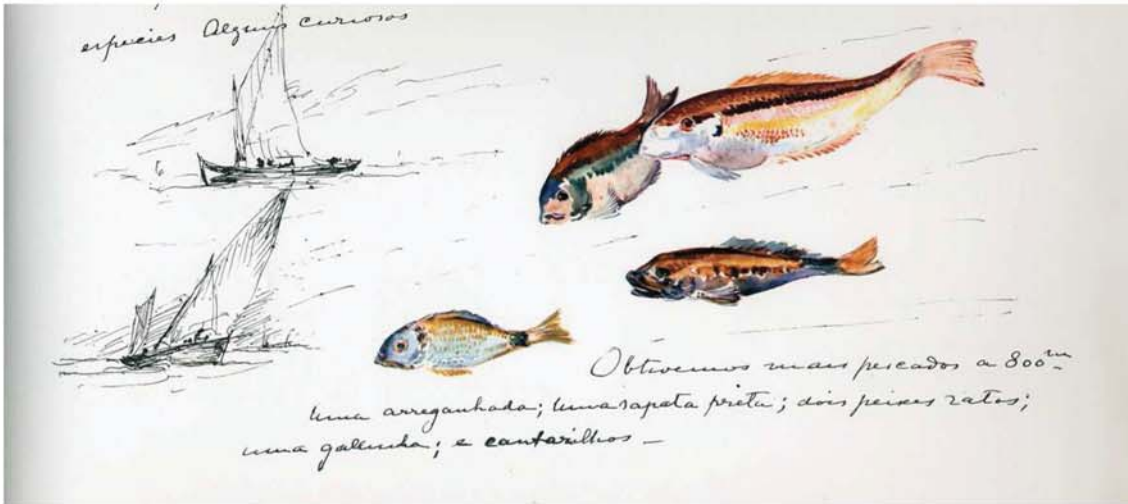 espécies Alguns curiosos
Obtivemos mais pescados a 800m-
uma arreganhada; uma sapata preta; dois peixes ratos;
uma gallinha; e cantarilhos —